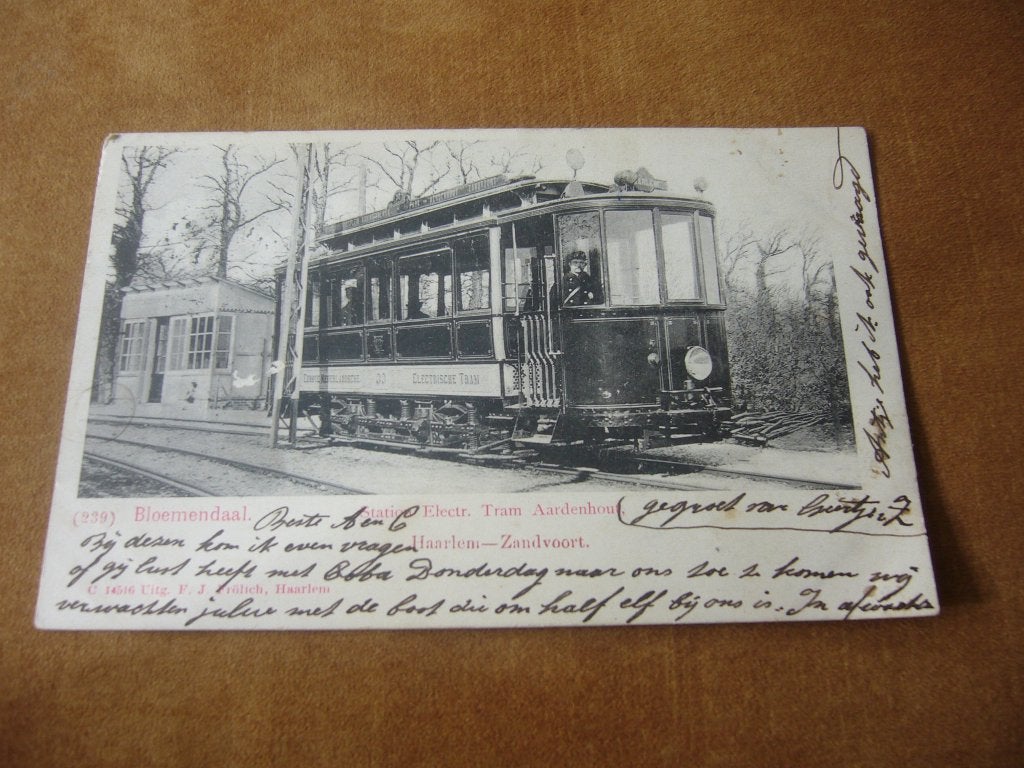 EERSTE NEDERLANDSCHE 33 ELECTRISCHE TRAM
(239) Bloemendaal. Station Electr. Tram Aardenhout.
Haarlem—Zandvoort.
C 14516 Uitg. F. J. Frölich, Haarlem
Beste A en C
Bij dezen kom ik even vragen
of gij lust heeft met Ebba Donderdag naar ons toe te komen wij
verwachten julie met de boot die om half elf bij ons is. In afwachte
gegroet van Geertje Z
Antje heb ik ook gevraagd